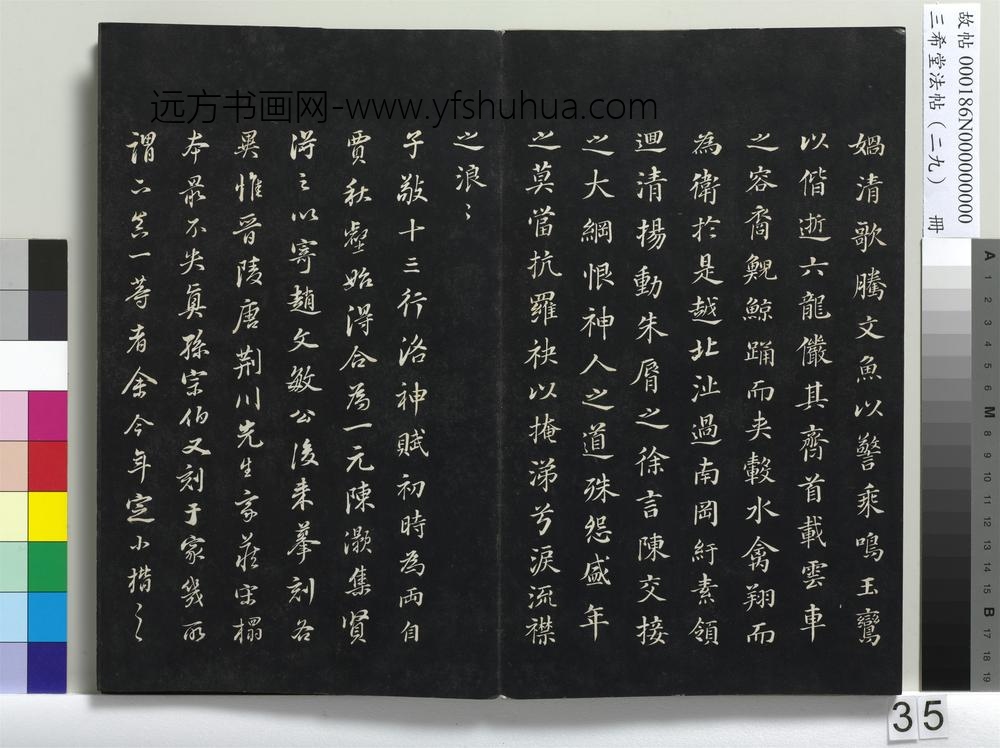 媧清歌騰文魚以警乘鳴玉鸞
以偕逝六龍儼其齊首載雲車
之容裔鯢鯨踊而夾轂水禽翔而
為衛於是越北沚過南岡紆素領
迴清揚動朱脣之徐言陳交接
之大綱恨神人之道殊怨盛年
之莫當抗羅袂以掩涕兮淚流襟
之浪〻
子敬十三行洛神賦初時為兩自
賈秋壑始得合為一元陳灝集賢
得之以寄趙文敏公後來摹刻各
異惟晉陵唐荆川先生家藏宋榻
本最不失真孫宗伯又刻于家幾所
謂下真一等者余今年定小楷之
远方书画网-www.yfshuhua.com
故帖 000186N000000000
三希堂法帖（二九） 冊
A 1 2 3 4 5 6 M 8 9 10 11 12 13 14 15 B 17 18 19
35